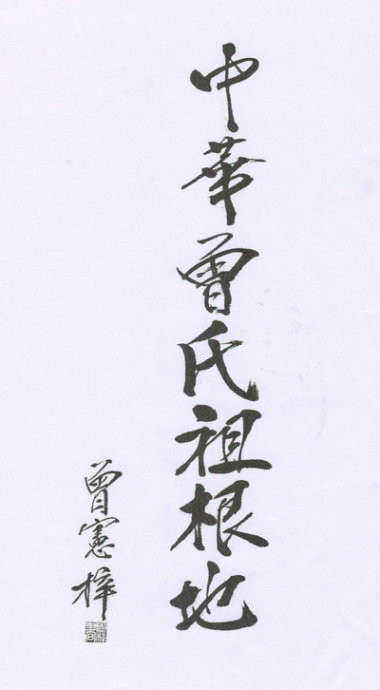 中華曾氏祖根地
曾憲梓